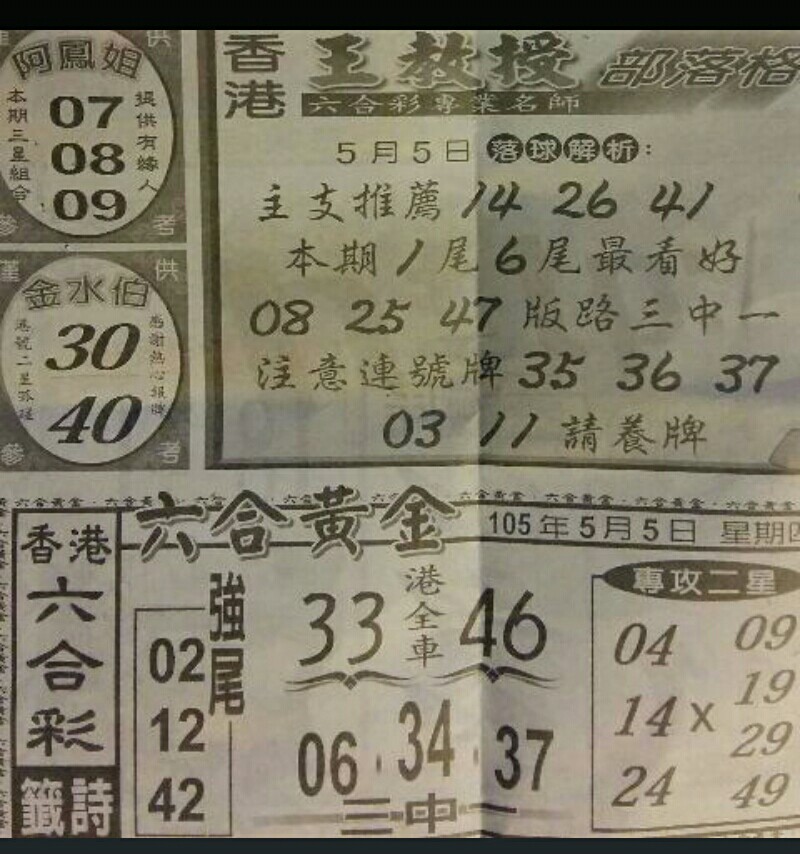 阿鳳姐
本期三星組合
07
08
09
提供有緣人
僅
供
參
考
金水伯
港號二星孤碰
30
40
感謝熱心報牌
香港
王教授
部落格
六合彩專業名師
5月5日 落球解析：
主支推薦 14 26 41
本期1尾6尾最看好
08 25 47 版路三中一
注意連號牌 35 36 37
03 11 請養牌
六合黃金
105年5月5日 星期四
香港
六合彩
籤詩
強尾
02
12
42
33 港全車 46
06 · 34 · 37
三中一
專攻二星
04 09
14 X 19
29
24 49